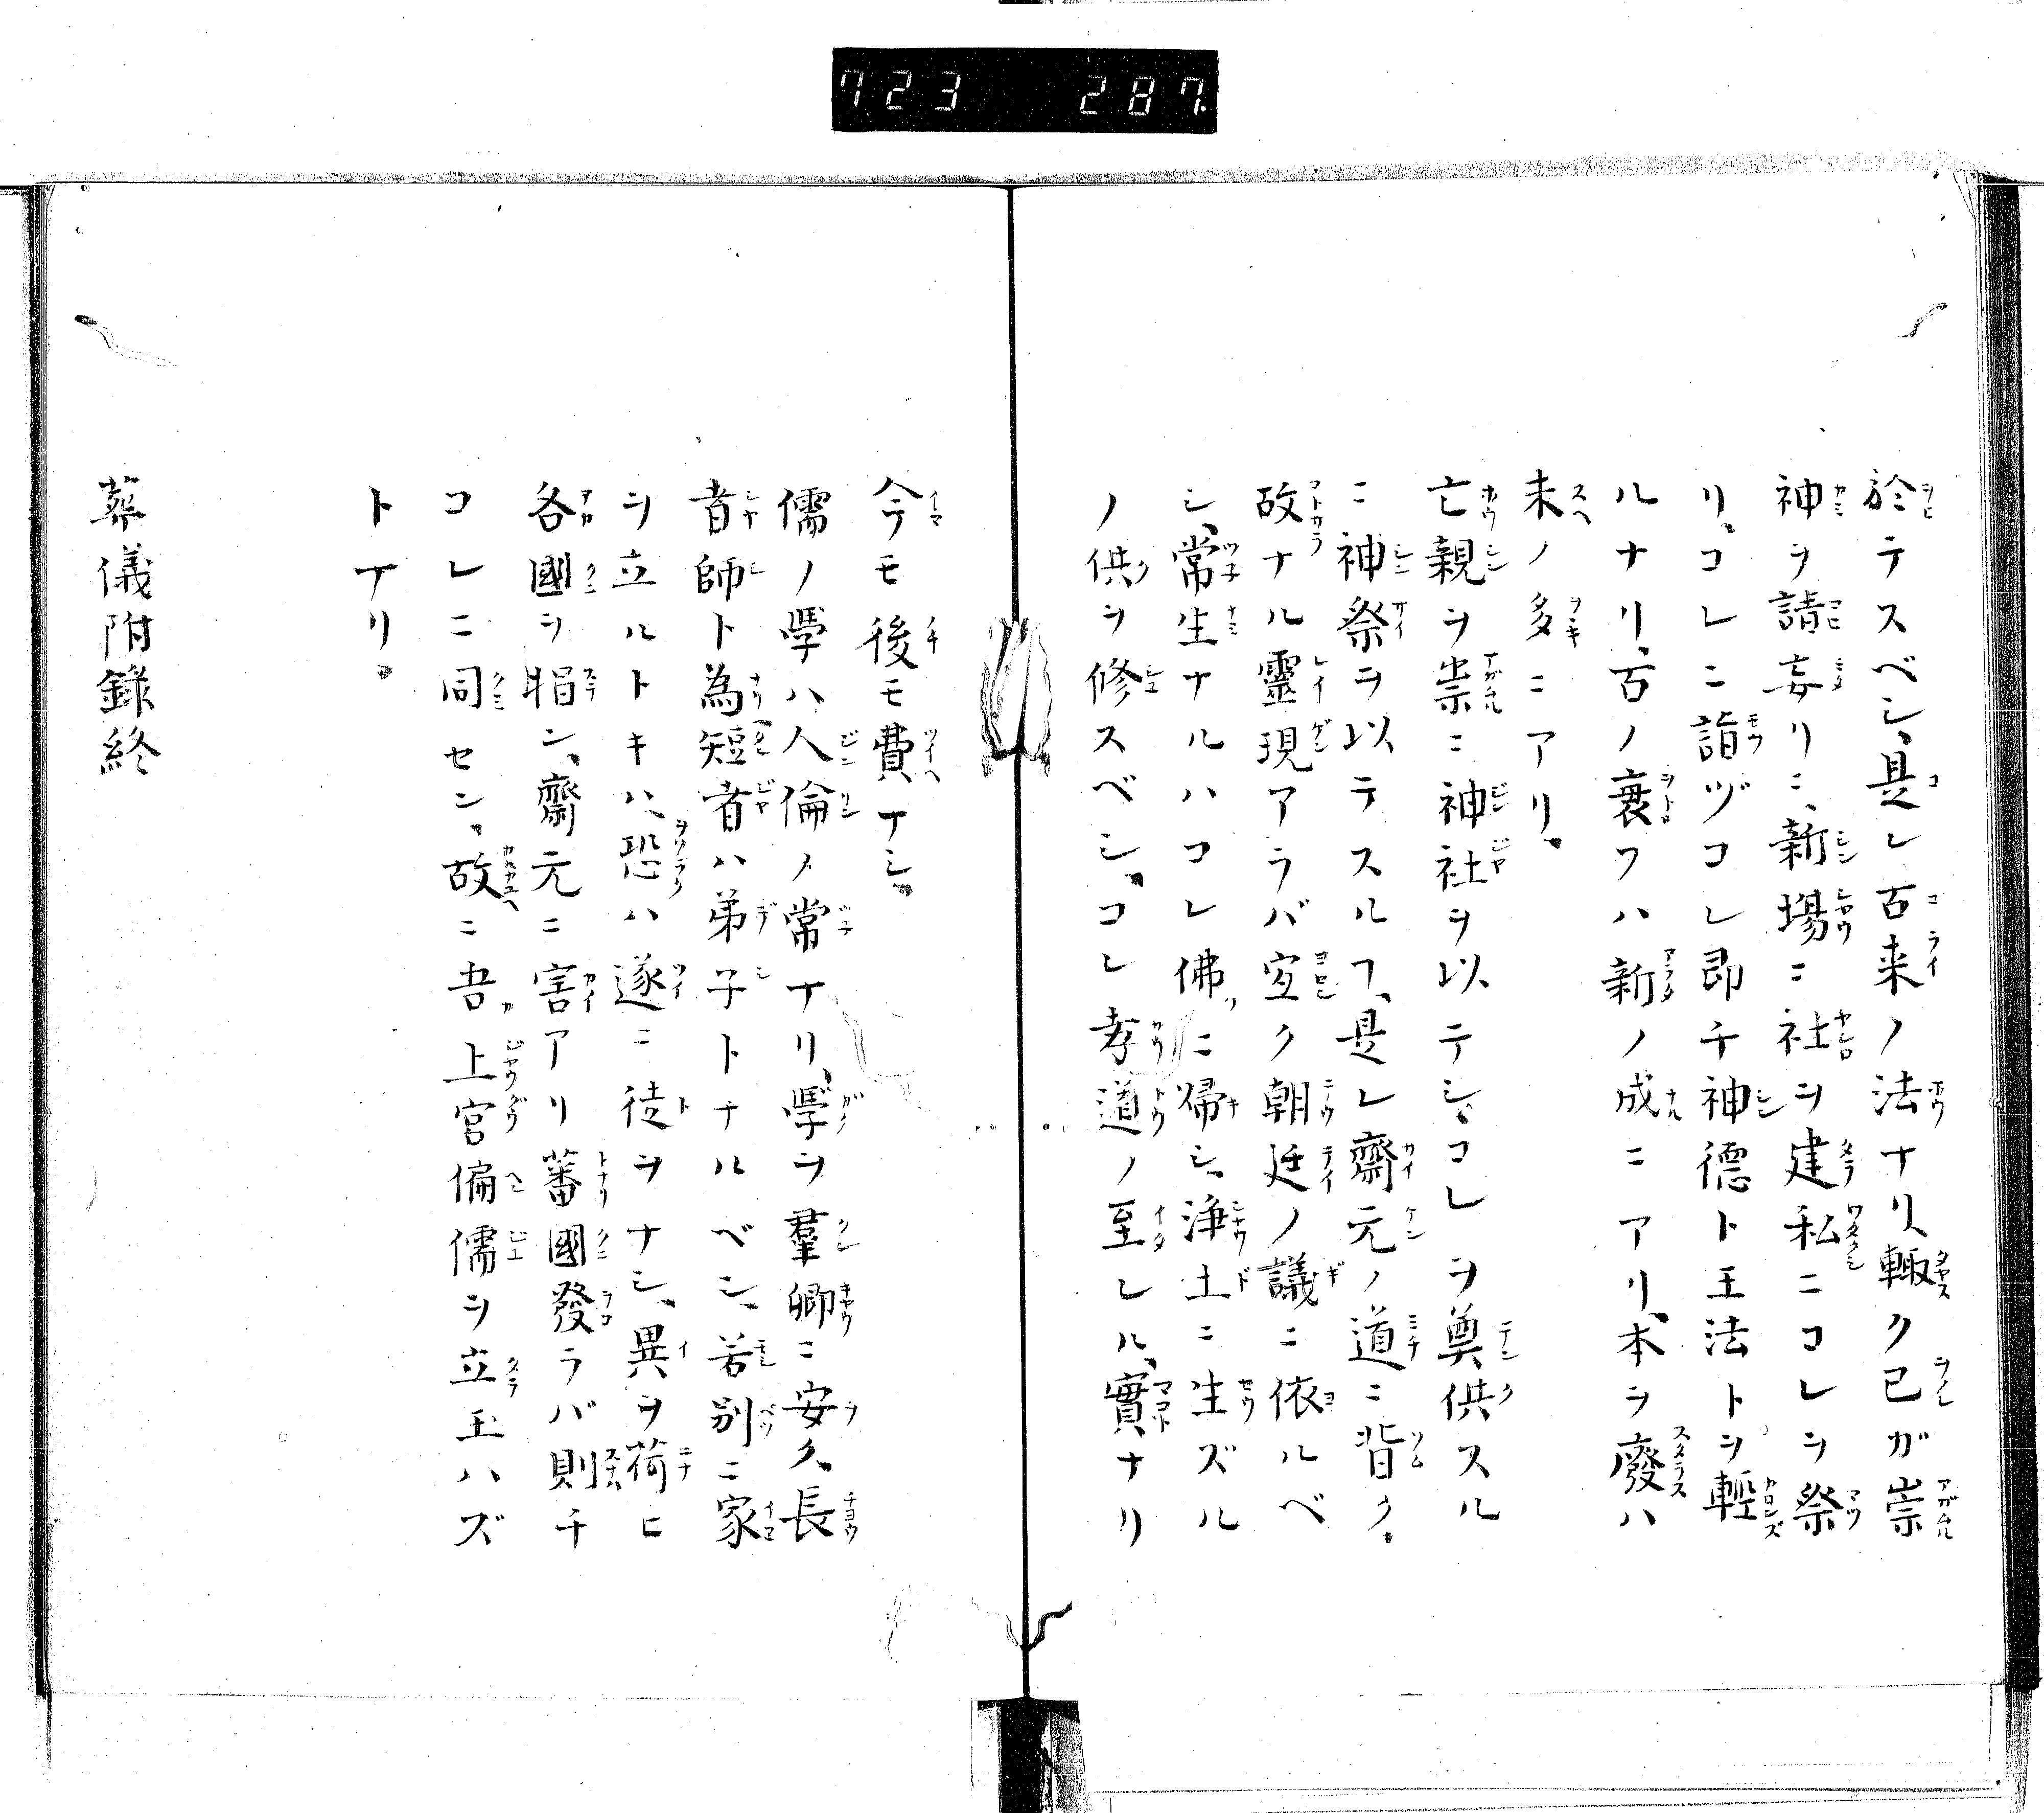 723 287
於テスベシ、是レ古来ノ法ナリ、輙ク已ガ崇
神ヲ請妄リニ、新場ニ社ヲ建私ニコレヲ祭
リ、コレニ詣ヅコレ即チ神德ト王法トヲ輕
ルナリ、古ノ衰フハ新ノ成ニアリ、本ヲ廢ハ
末ノ多ニアリ。
亡親ヲ崇ニ神社ヲ以テシ、コレヲ奠供スル
ニ神祭ヲ以テスルヿ、是レ齋元ノ道ニ背ク。
故ナル靈現アラバ宜ク朝廷ノ議ニ依ルベ
シ、常生ナルハコレ佛ニ帰シ、浄土ニ生ズル
ノ供ヲ修スベシ、コレ孝道ノ至レル、實ナリ
今モ後モ費ナシ。
儒ノ學ハ人倫ノ常ナリ、學ヲ羣卿ニ安ク、長
者師ト為短者ハ弟子トナルベシ、若別ニ家
ヲ立ルトキハ、恐ハ遂ニ徒ヲナシ、異ヲ荷ヒ
各國ヲ捐ン、齋元ニ害アリ蕃國發ラバ則チ
コレニ同セン、故ニ吾上宮偏儒ヲ立玉ハズ
トナリ。
葬儀附錄終